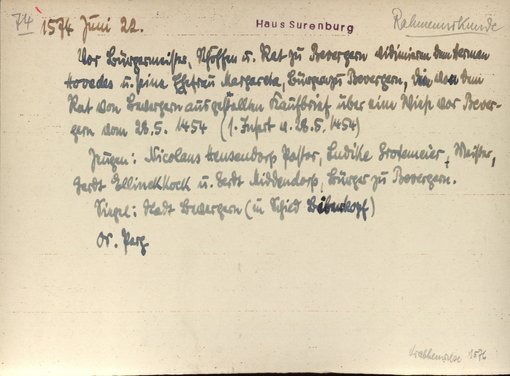 74 1574 Juni 22. Haus Surenburg Rahmenurkunde
Vor Bürgermeister, Schöffen u. Rat zu Bevergern vidimieren den Herman
u. seine Ehefrau Margareta, Bürger zu Bevergern, die von dem
Rat von Bevergern ausgestellten Kaufbrief über eine Wiese vor Bever-
gern vom 28.5.1454 (1. Insert v. 28.5.1454)
Zeugen: Nicolaus Hensendorp Pastor, Ludike Grotemeier, Meister,
Gerdt u. Gerdt Middendorp, Bürger zu Bevergern.
Siegel: Stadt Bevergern (in Schied)
Or. Perg.
1576